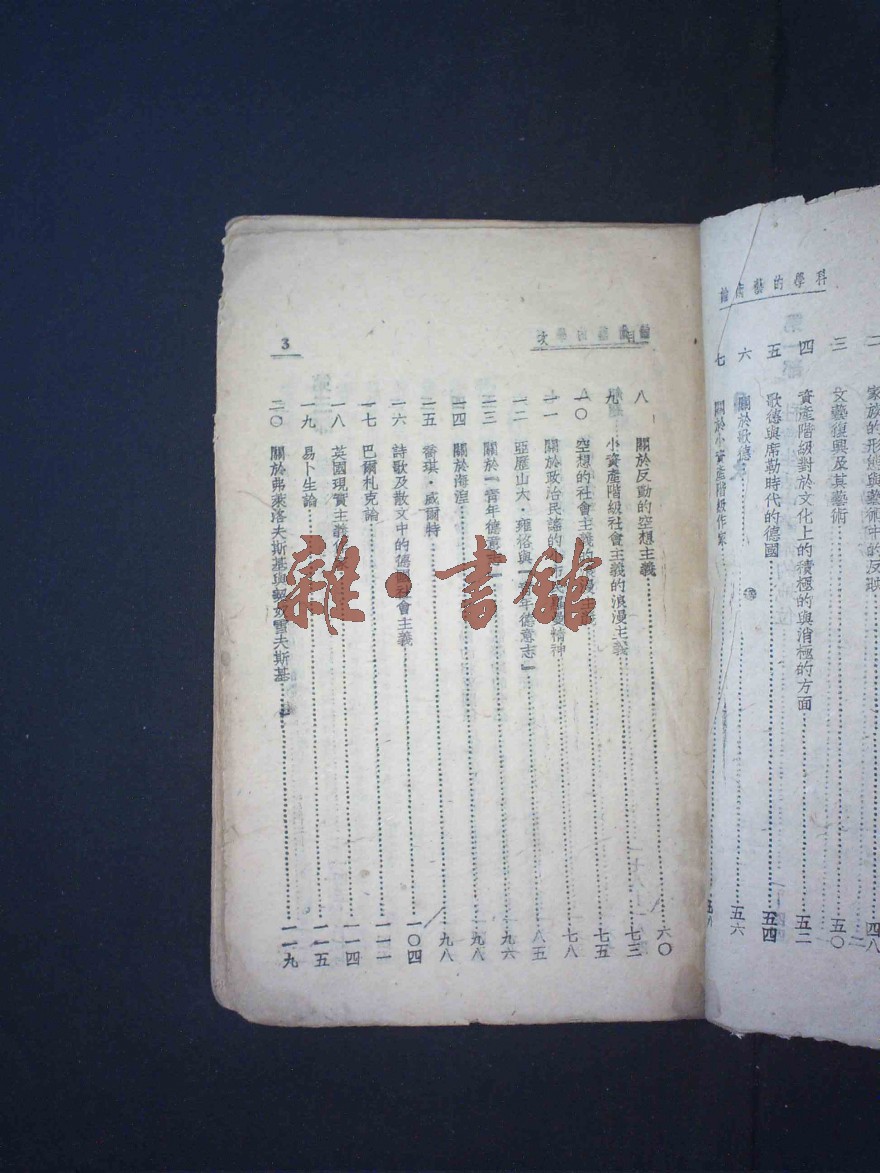 科學的藝術論
家族的形態與藝術中的反映……四八
三 文藝復興及其藝術……五〇
四 資產階級對於文化上的積極的與消極的方面……五二
五 歌德與席勒時代的德國……五四
六 關於歌德……五六
七 關於小資產階級作家……五八
目次
3
八 關於反動的空想主義……六〇
九 小資產階級社會主義的浪漫主義……七三
一〇 空想的社會主義的……七五
一一 關於政治民謠的……精神……七八
一二 亞歷山大・雍格與「青年德意志」……八五
一三 關於「青年德意志」……九六
一四 關於海涅……九八
一五 喬琪・威爾特……九八
一六 詩歌及散文中的德國社會主義……一〇四
一七 巴爾札克論……一一一
一八 英國現實主義……一一四
一九 易卜生論……一一五
二〇 關於弗萊洛夫斯基與雪夫斯基……一一九
雜・書館